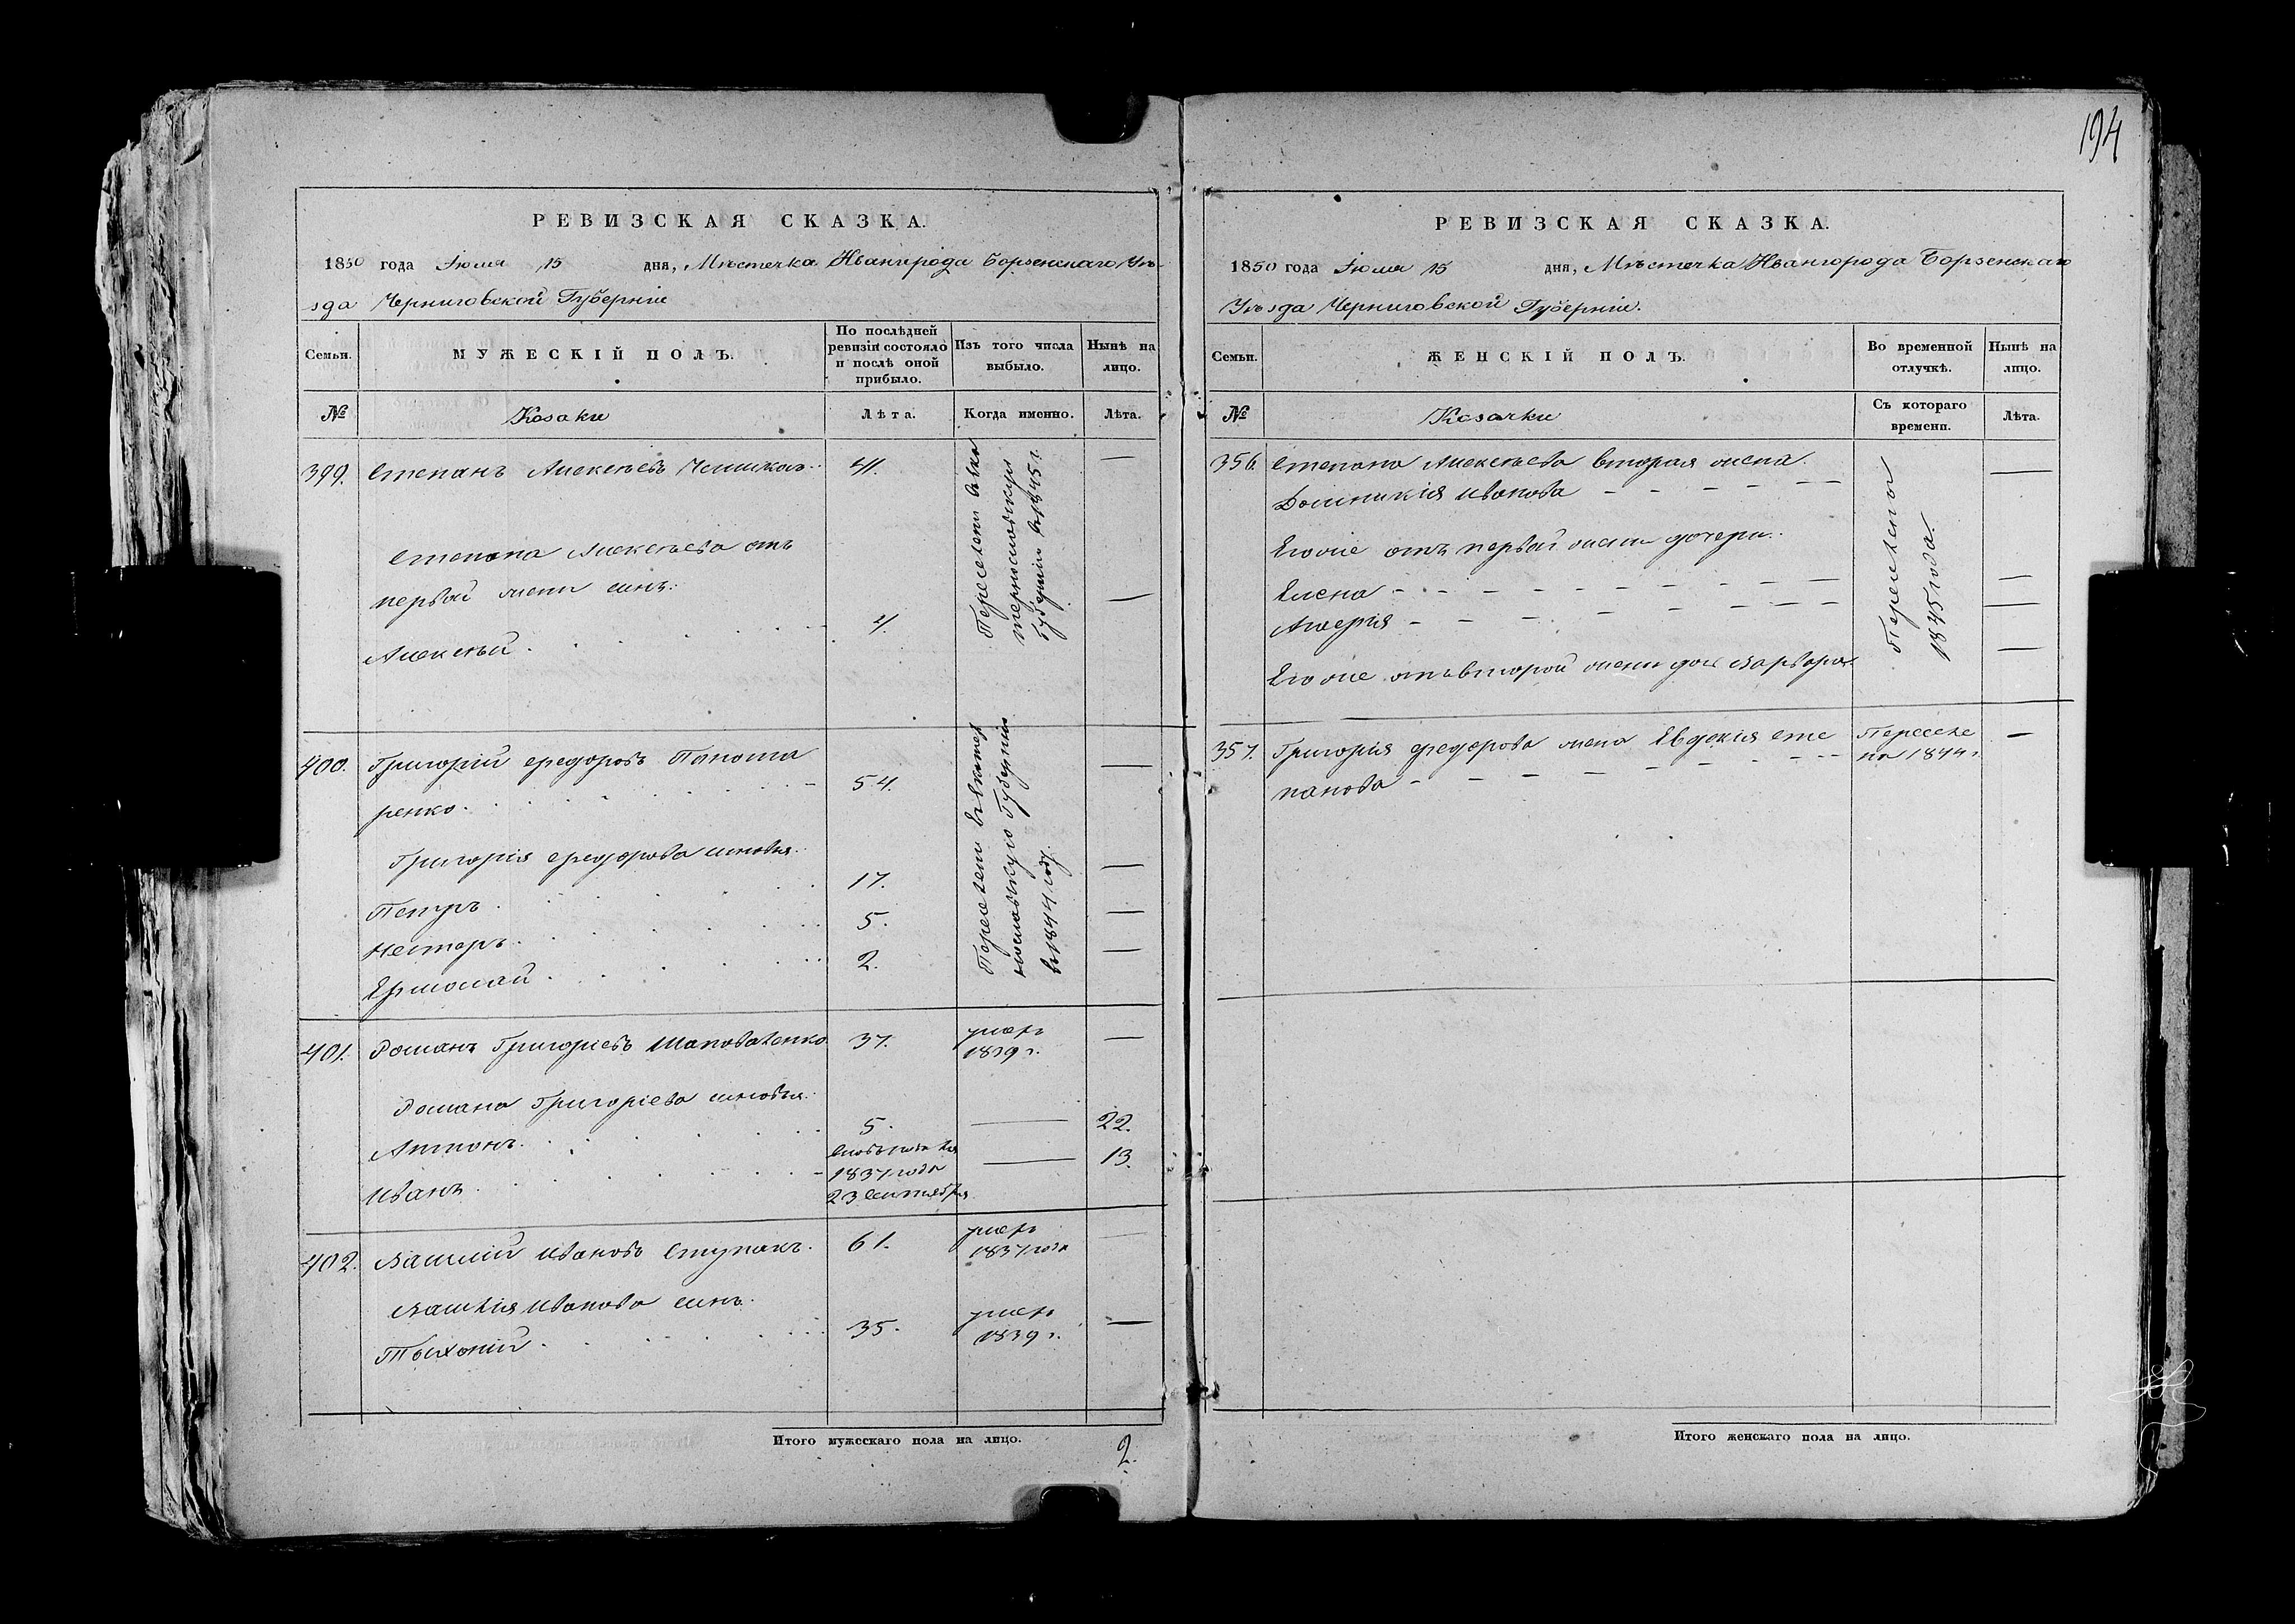 194
РЕВИЗСКАЯ СКАЗКА.
1850 года Іюля 15 дня, Мѣстечка Ивангорода Борзенскаго Уѣ-
зда Черниговской Губерніи
Семьи.
МУЖЕСКІЙ ПОЛЪ.
По послѣдней
ревизіи состояло
и послѣ оной
прибыло.
Изъ того числа
выбыло.
Нынѣ на
лицо.
№
Козаки
Лѣта.
Когда именно.
Лѣта.
399. Степанъ Алексѣевъ 41. —
Степана Алексѣева отъ
первой жены сынъ:
Алексѣй 4. —
Переселен въ Ека
теринославскую
Губернію въ 1845 г.
400. Григорій Федоровъ Панома
ренко 54. —
Григорія Федорова сыновья:
Петръ 17. —
Несторъ 5. —
Ермолай 2. —
Переселен въ Екатери
нославскую Губернію
въ 1844 году.
401. Романъ Григоріевъ Шаповаленко 37. умеръ —
1839 г.
Романа Григоріева сыновья:
Антонъ 5. — 22.
Иванъ — 13.
1837 года
23 Сентября
402. Василій Ивановъ Ступакъ. 61. умеръ —
1837 года
Василія Иванова сынъ
35. умеръ —
1839 г.
Итого мужескаго пола на лицо.
2.
РЕВИЗСКАЯ СКАЗКА.
1850 года Іюля 15 дня, Мѣстечка Ивангорода Борзенскаго
Уѣзда Черниговской Губерніи.
Семьи.
ЖЕНСКІЙ ПОЛЪ.
Во временной
отлучкѣ.
Нынѣ на
лицо.
№
Козачки
Съ котораго
времени.
Лѣта.
356. Степана Алексѣева вторая жена —
Домникія Иванова
Его же отъ первой жены дочери:
Елена —
—
Его же отъ второй жены дочь Варвара —
Переселены
1845 года.
357. Григорія Федорова жена Евдокія Сте Переселе —
панова на 1844 г.
Итого женскаго пола на лицо.